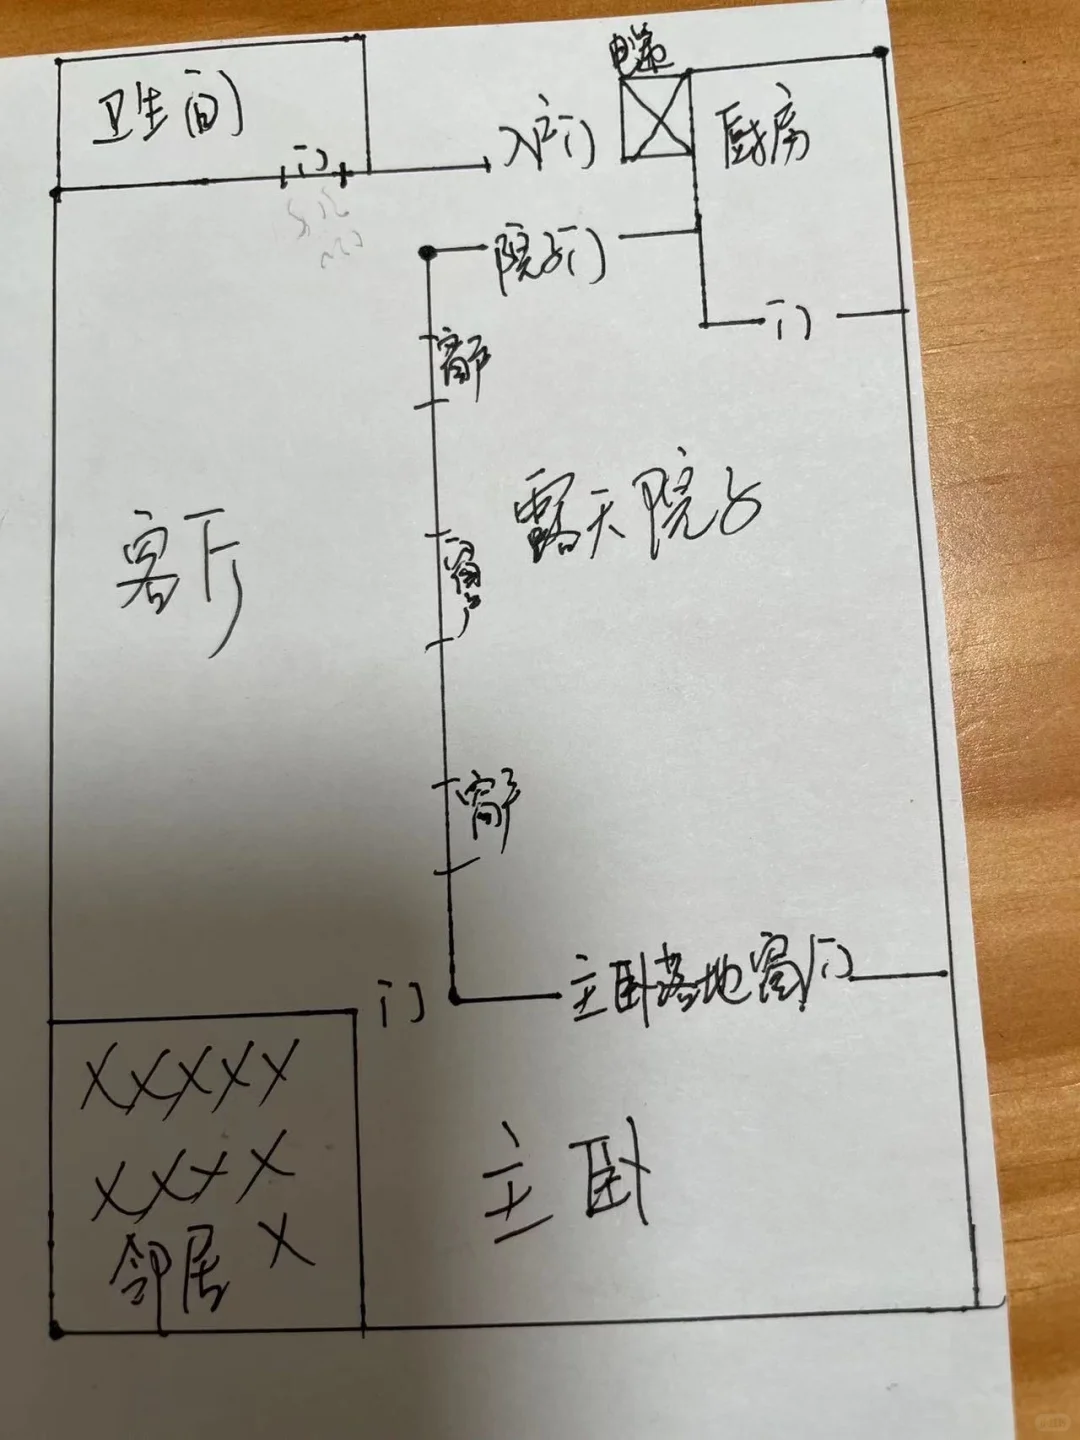 电梯
卫生间
门
入户门
厨房
院子门
门
窗户
露天院子
客厅
窗户
窗户
门
主卧落地窗门
XXXXX
XXXX
主卧
邻居 X